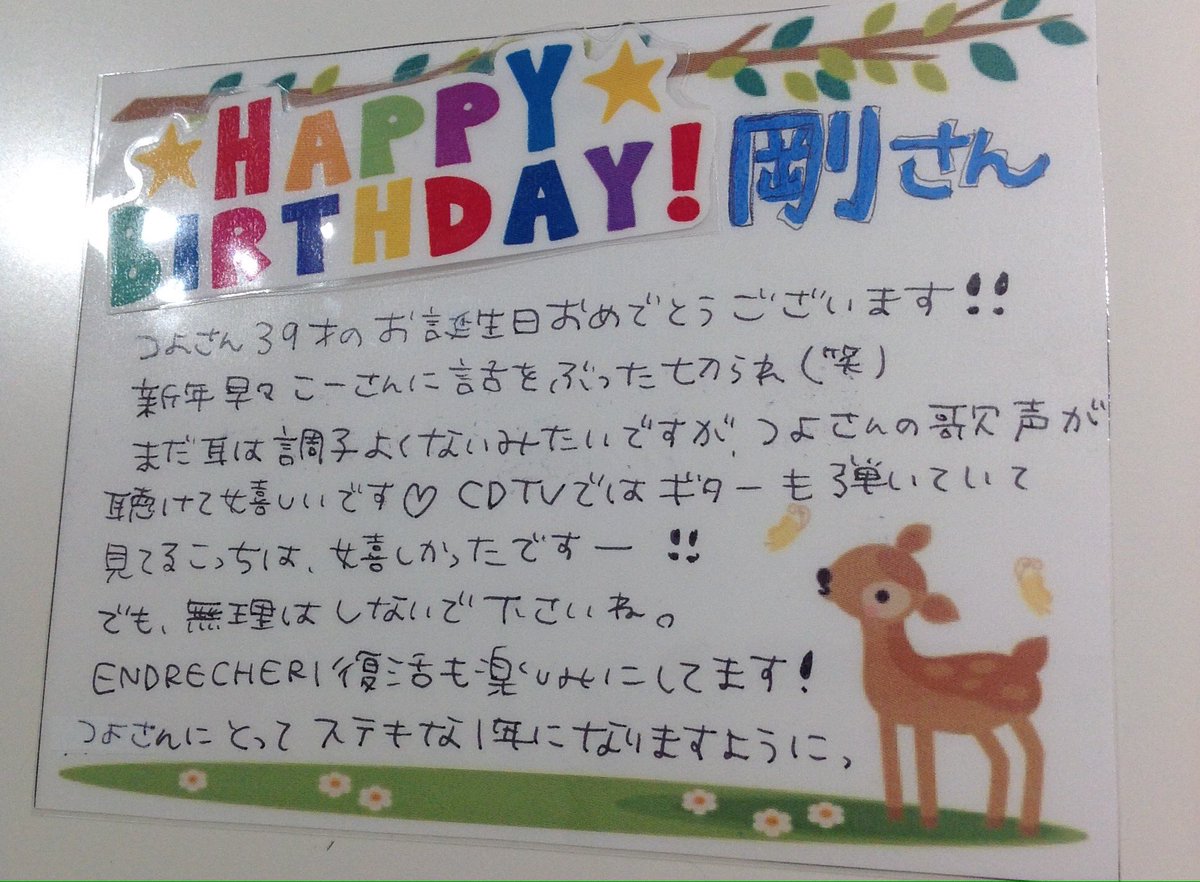 HAPPY
BIRTHDAY! 剛さん
つよさん39才のお誕生日おめでとうございます!!
新年早々こーさんに話をぶった切られ(笑)
まだ耳は調子よくないみたいですが、つよさんの歌声が
聴けて嬉しいです♡ CDTVではギターも弾いていて
見てるこっちは、嬉しかったですー!!
でも、無理はしないで下さいね。
ENDRECHERI復活も楽しみにしてます!
つよさんにとってステキな1年になりますように、